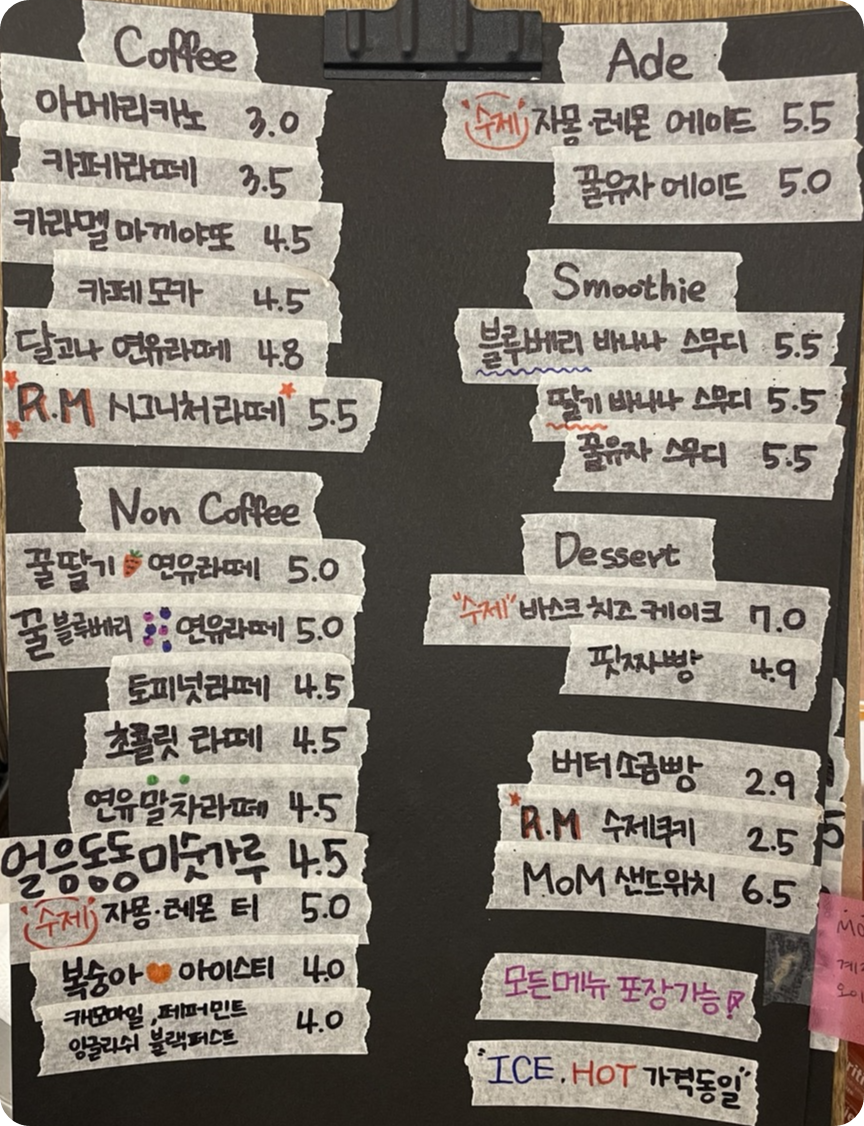 Coffee
아메리카노 3.0
카페라떼 3.5
카라멜 마끼야또 4.5
카페모카 4.5
달고나 연유라떼 4.8
R.M 시그니처라떼 5.5
Non Coffee
꿀딸기 연유라떼 5.0
꿀블루베리 연유라떼 5.0
토피넛라떼 4.5
초콜릿 라떼 4.5
연유말차라떼 4.5
얼음동동미숫가루 4.5
"수제" 자몽·레몬 티 5.0
복숭아 아이스티 4.0
캐모마일, 페퍼민트
잉글리쉬 블랙퍼스트 4.0
Ade
"수제" 자몽·레몬 에이드 5.5
꿀유자 에이드 5.0
Smoothie
블루베리 바나나 스무디 5.5
딸기 바나나 스무디 5.5
꿀유자 스무디 5.5
Dessert
"수제" 바스크 치즈 케이크 7.0
핏짜빵 4.9
버터소금빵 2.9
R.M 수제쿠키 2.5
MoM 샌드위치 6.5
모든메뉴 포장가능!
"ICE.HOT 가격동일"